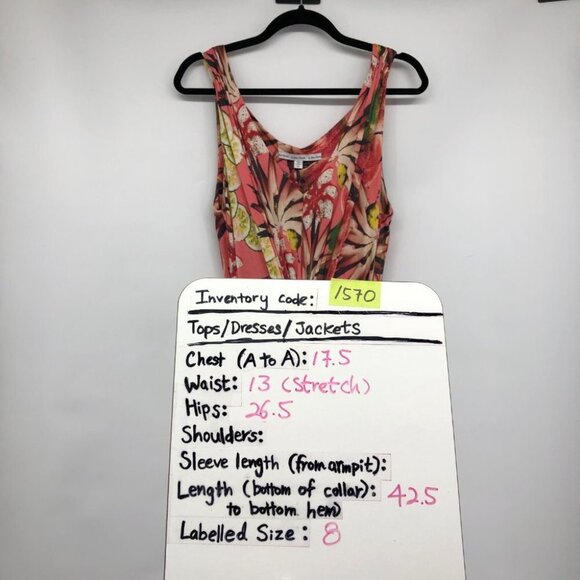 Inventory code: 1570
Tops/Dresses/Jackets
Chest (A to A): 17.5
Waist: 13 (Stretch)
Hips: 26.5
Shoulders:
Sleeve length (from armpit):
Length (bottom of collar): 42.5
to bottom hem)
Labelled Size: 8